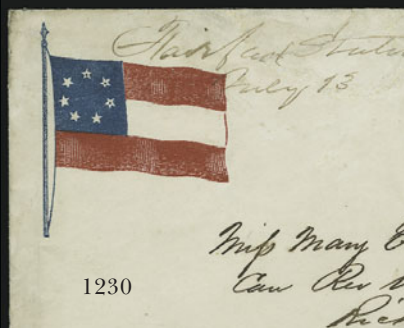 Fairfax Station
July 13
Miss Mary
Care Rev
1230